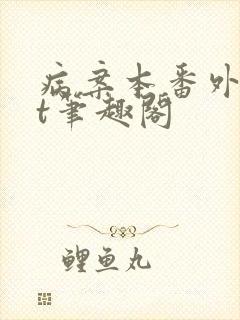 病案本番外
t笔趣阁
鲤鱼丸